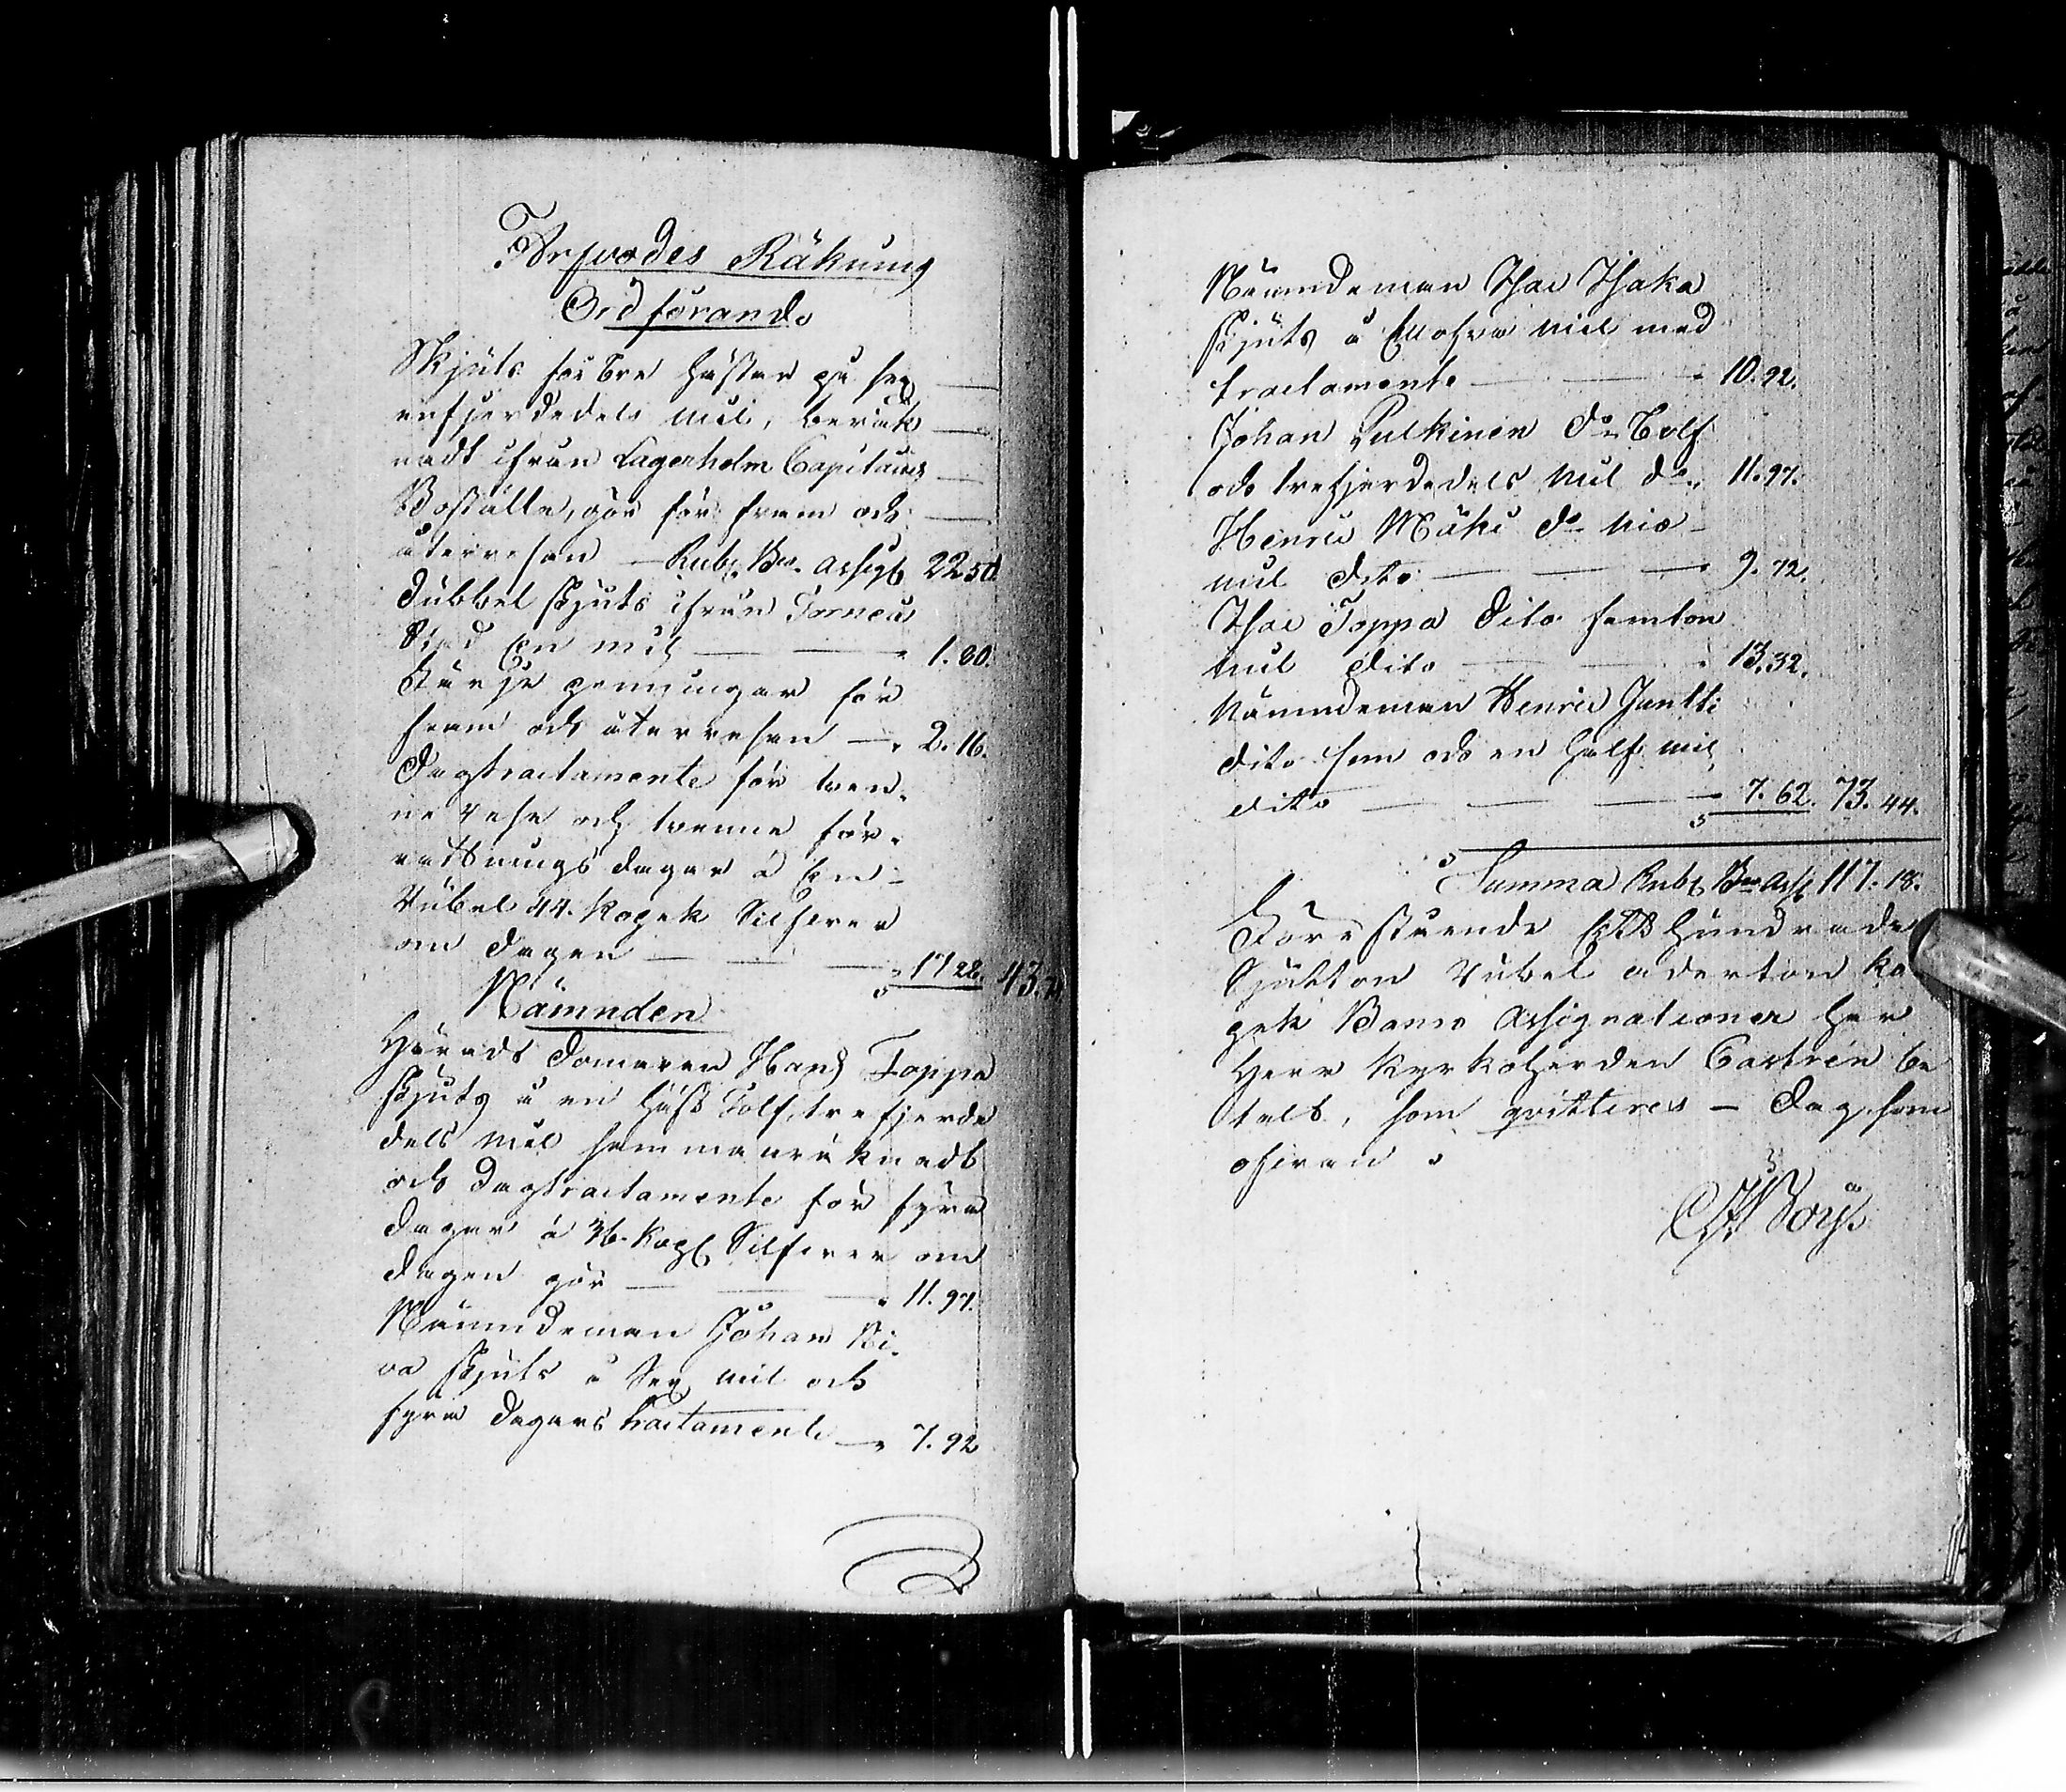 Arfvodes Räkning
Ordförande
Skjuts för tre hästar på sex
enfjerdedels mil, beräk
nadt ifrån Lagerholm Capitains
Boställe, gör för fram och
återresan — Rub. Bco. Assigt 22.50.
dubbel skjuts ifrån Torneå
Stad En mil — 1.80.
Färje penningar för
fram och återresan — 2.16.
Dagtractamente för tven-
ne rese och tvenne för-
rättnings dagar á En
Rubel 44. Kopek Silfver
om dagen — 17.28. 43.
Nämnden
Härads Domaren Hans Toppa
skjuts å en häst Tolf, trefjerde
dels mil sammanräknadt
och Dagtractamente för fyra
dagar á 36. Kop. Silfver om
dagen gör — 11.97.
Nämndeman Johan Ki-
va skjuts å Sex mil och
fyra dagars tractamente — 7.92
Nämndeman Isac Isaka
skjuts å Ellofva mil med
tractamente — 10.92.
Johan Pulkinen do Tolf
och trefjerdedels mil do 11.97.
Henric Mäki do nio
mil dito — 9.72.
Isac Toppa dito femton
mil dito — 13.32.
Nämndeman Henric Juntti
dito fem och en half mil
dito — 7.62. 73.44.
Summa Rub. Bco Ass. 117.18.
Förestående Ett hundrade
Sjutton Rubel aderton Ko
pek Banco Assignationer har
Herr Kyrkoherden Castrén be
talt, som qvitteres — Dag som
ofvan